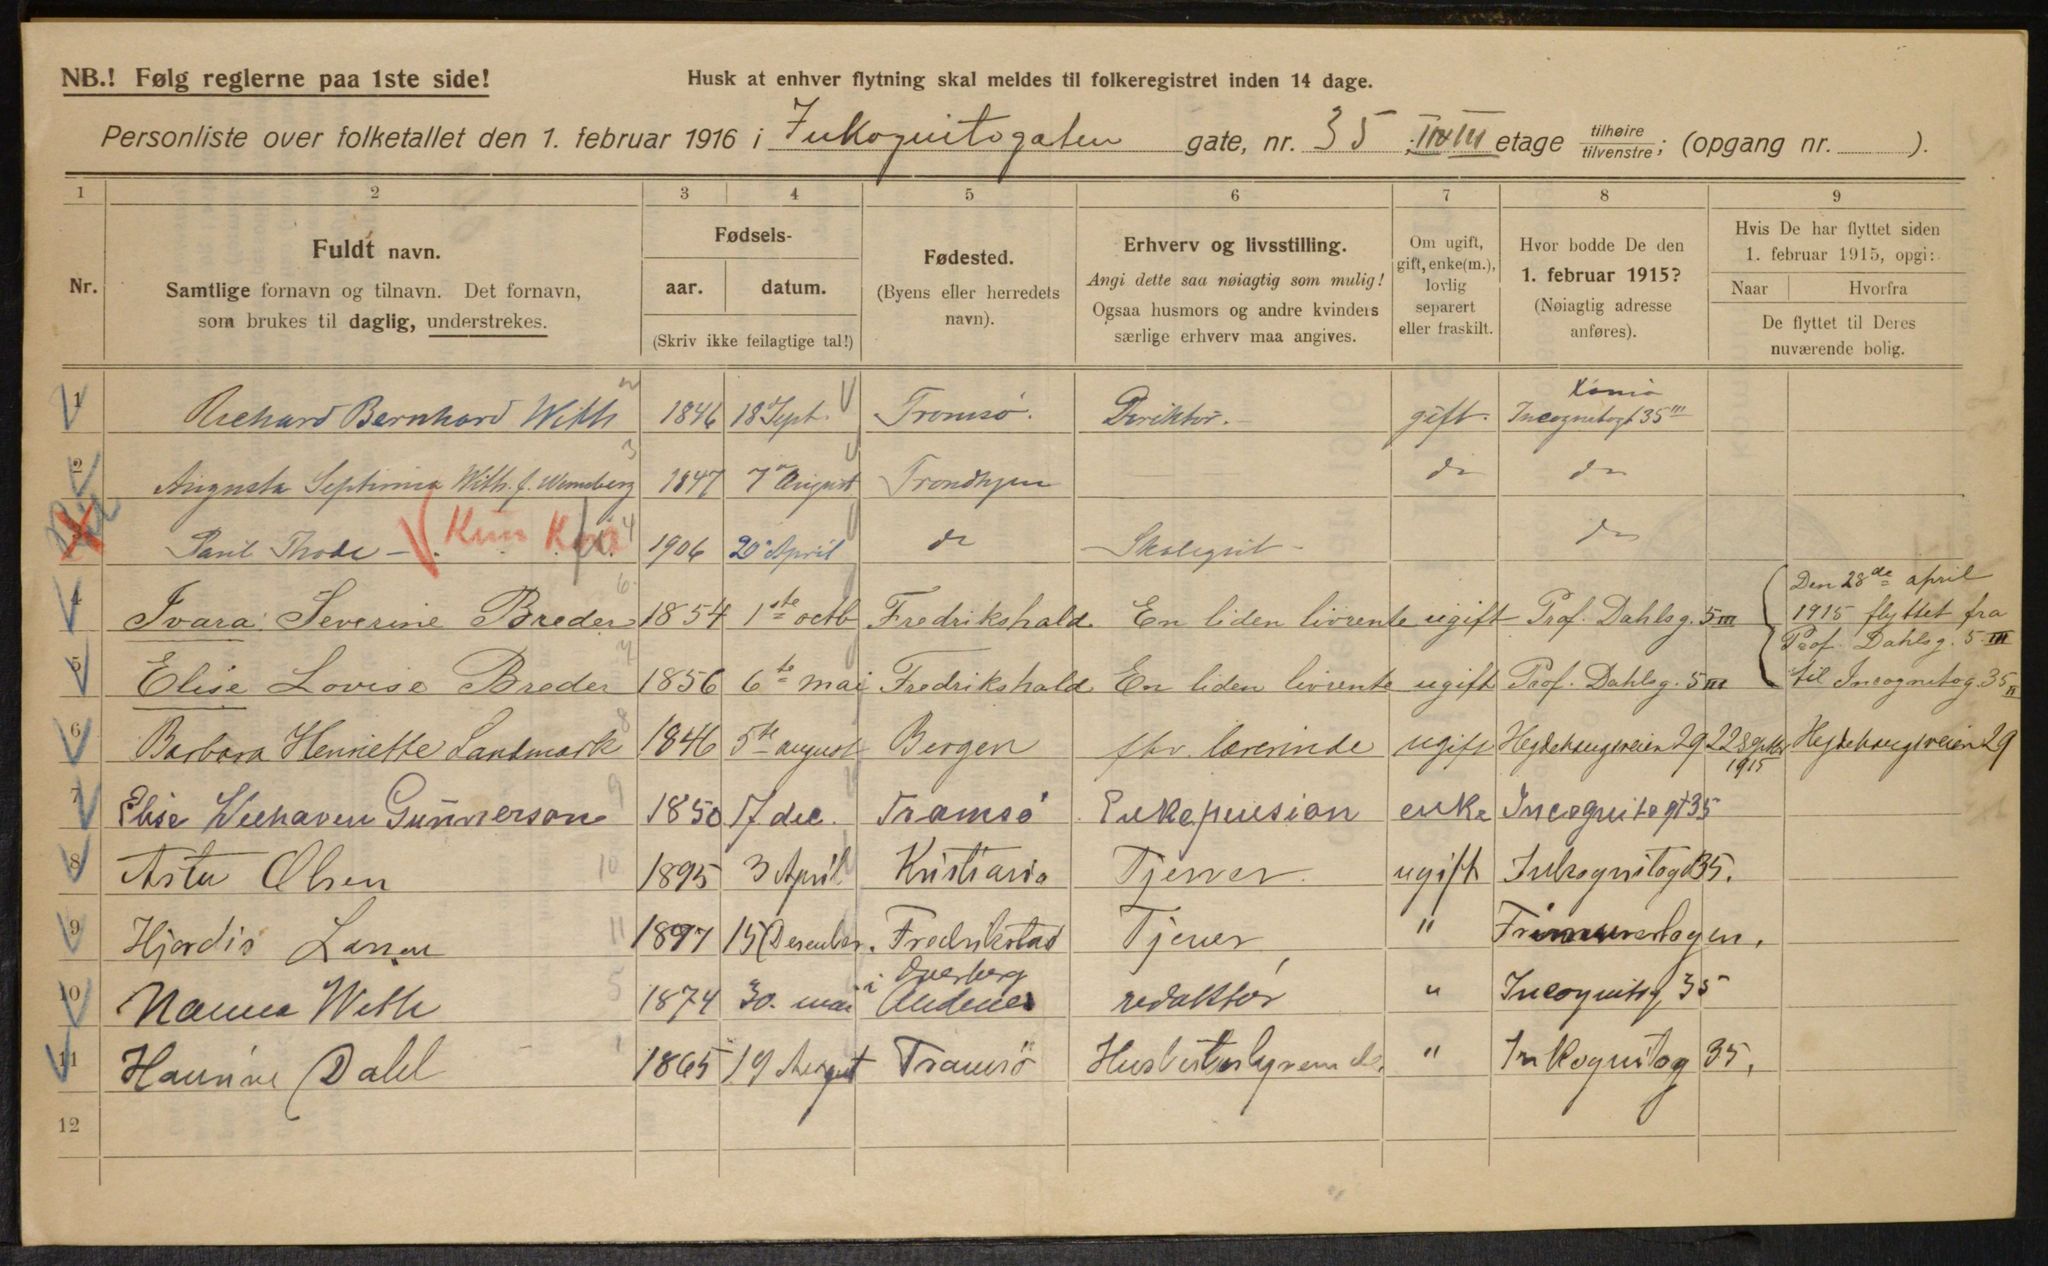 NB.! Følg reglerne paa 1ste side!
Husk at enhver flytning skal meldes til folkeregistret inden 14 dage.
Personliste over folketallet den 1. februar 1916 i Inkognitogaten gate, nr. 35, II & III etage tilhøire/tilvenstre; (opgang nr. ).
1 2 3 4 5 6 7 8 9
Nr.
Fuldt navn.
Samtlige fornavn og tilnavn. Det fornavn,
som brukes til daglig, understrekes.
Fødsels-
aar. datum.
(Skriv ikke feilagtige tal!)
Fødested.
(Byens eller herredets
navn).
Erhverv og livsstilling.
Angi dette saa nøiagtig som mulig!
Ogsaa husmors og andre kvinders
særlige erhverv maa angives.
Om ugift,
gift, enke(m.),
lovlig
separert
eller fraskilt.
Hvor bodde De den
1. februar 1915?
(Nøiagtig adresse
anføres).
Hvis De har flyttet siden
1. februar 1915, opgi:
Naar Hvorfra
De flyttet til Deres
nuværende bolig.
1 Richard Bernhard With 2 1846 18 Sept. Tromsø. Direktør. gift. Xania Incognitogt 35 III
2 Augusta Septimia With f. 3 1847 7 August Trondhjem do do
3 Paul Thode Kun 4 1906 20 April do Skolegut do
4 Ivara Severine Breder 6 1854 1ste octb Fredrikshald En liden livrente ugift Prof. Dahlsg. 5 III
Den 28de april
1915 flyttet fra
Prof. Dahlsg. 5 III
til Incognitog. 35 II
5 Elise Lovise Breder 7 1856 6te mai Fredrikshald En liden livrente ugift Prof. Dahlsg. 5 III
6 Barbara Henriette Landmark 8 1846 5te august Bergen fhv. lærerinde ugift Hegdehaugsveien 29 22 septbr 1915 Hegdehaugsveien 29
7 Elise Weehaven Gunnerson 9 1850 17. dec. Tromsø Enkepension enke Incognitogt 35
8 Asta Olsen 10 1895 3 April Kristiania Tjener ugift Inkognitogt 35.
9 Hjordis Larsen 11 1897 15 Desember. Fredrikstad Tjener " Frimurerlogen.
10 Nanna With 5 1874 30. mai i Dverberg Andenes redaktør " Incognitog 35
11 Hannine Dahl 1 1865 19 August Tromsø Husbestyrerinde. " Inkognitog 35.
12